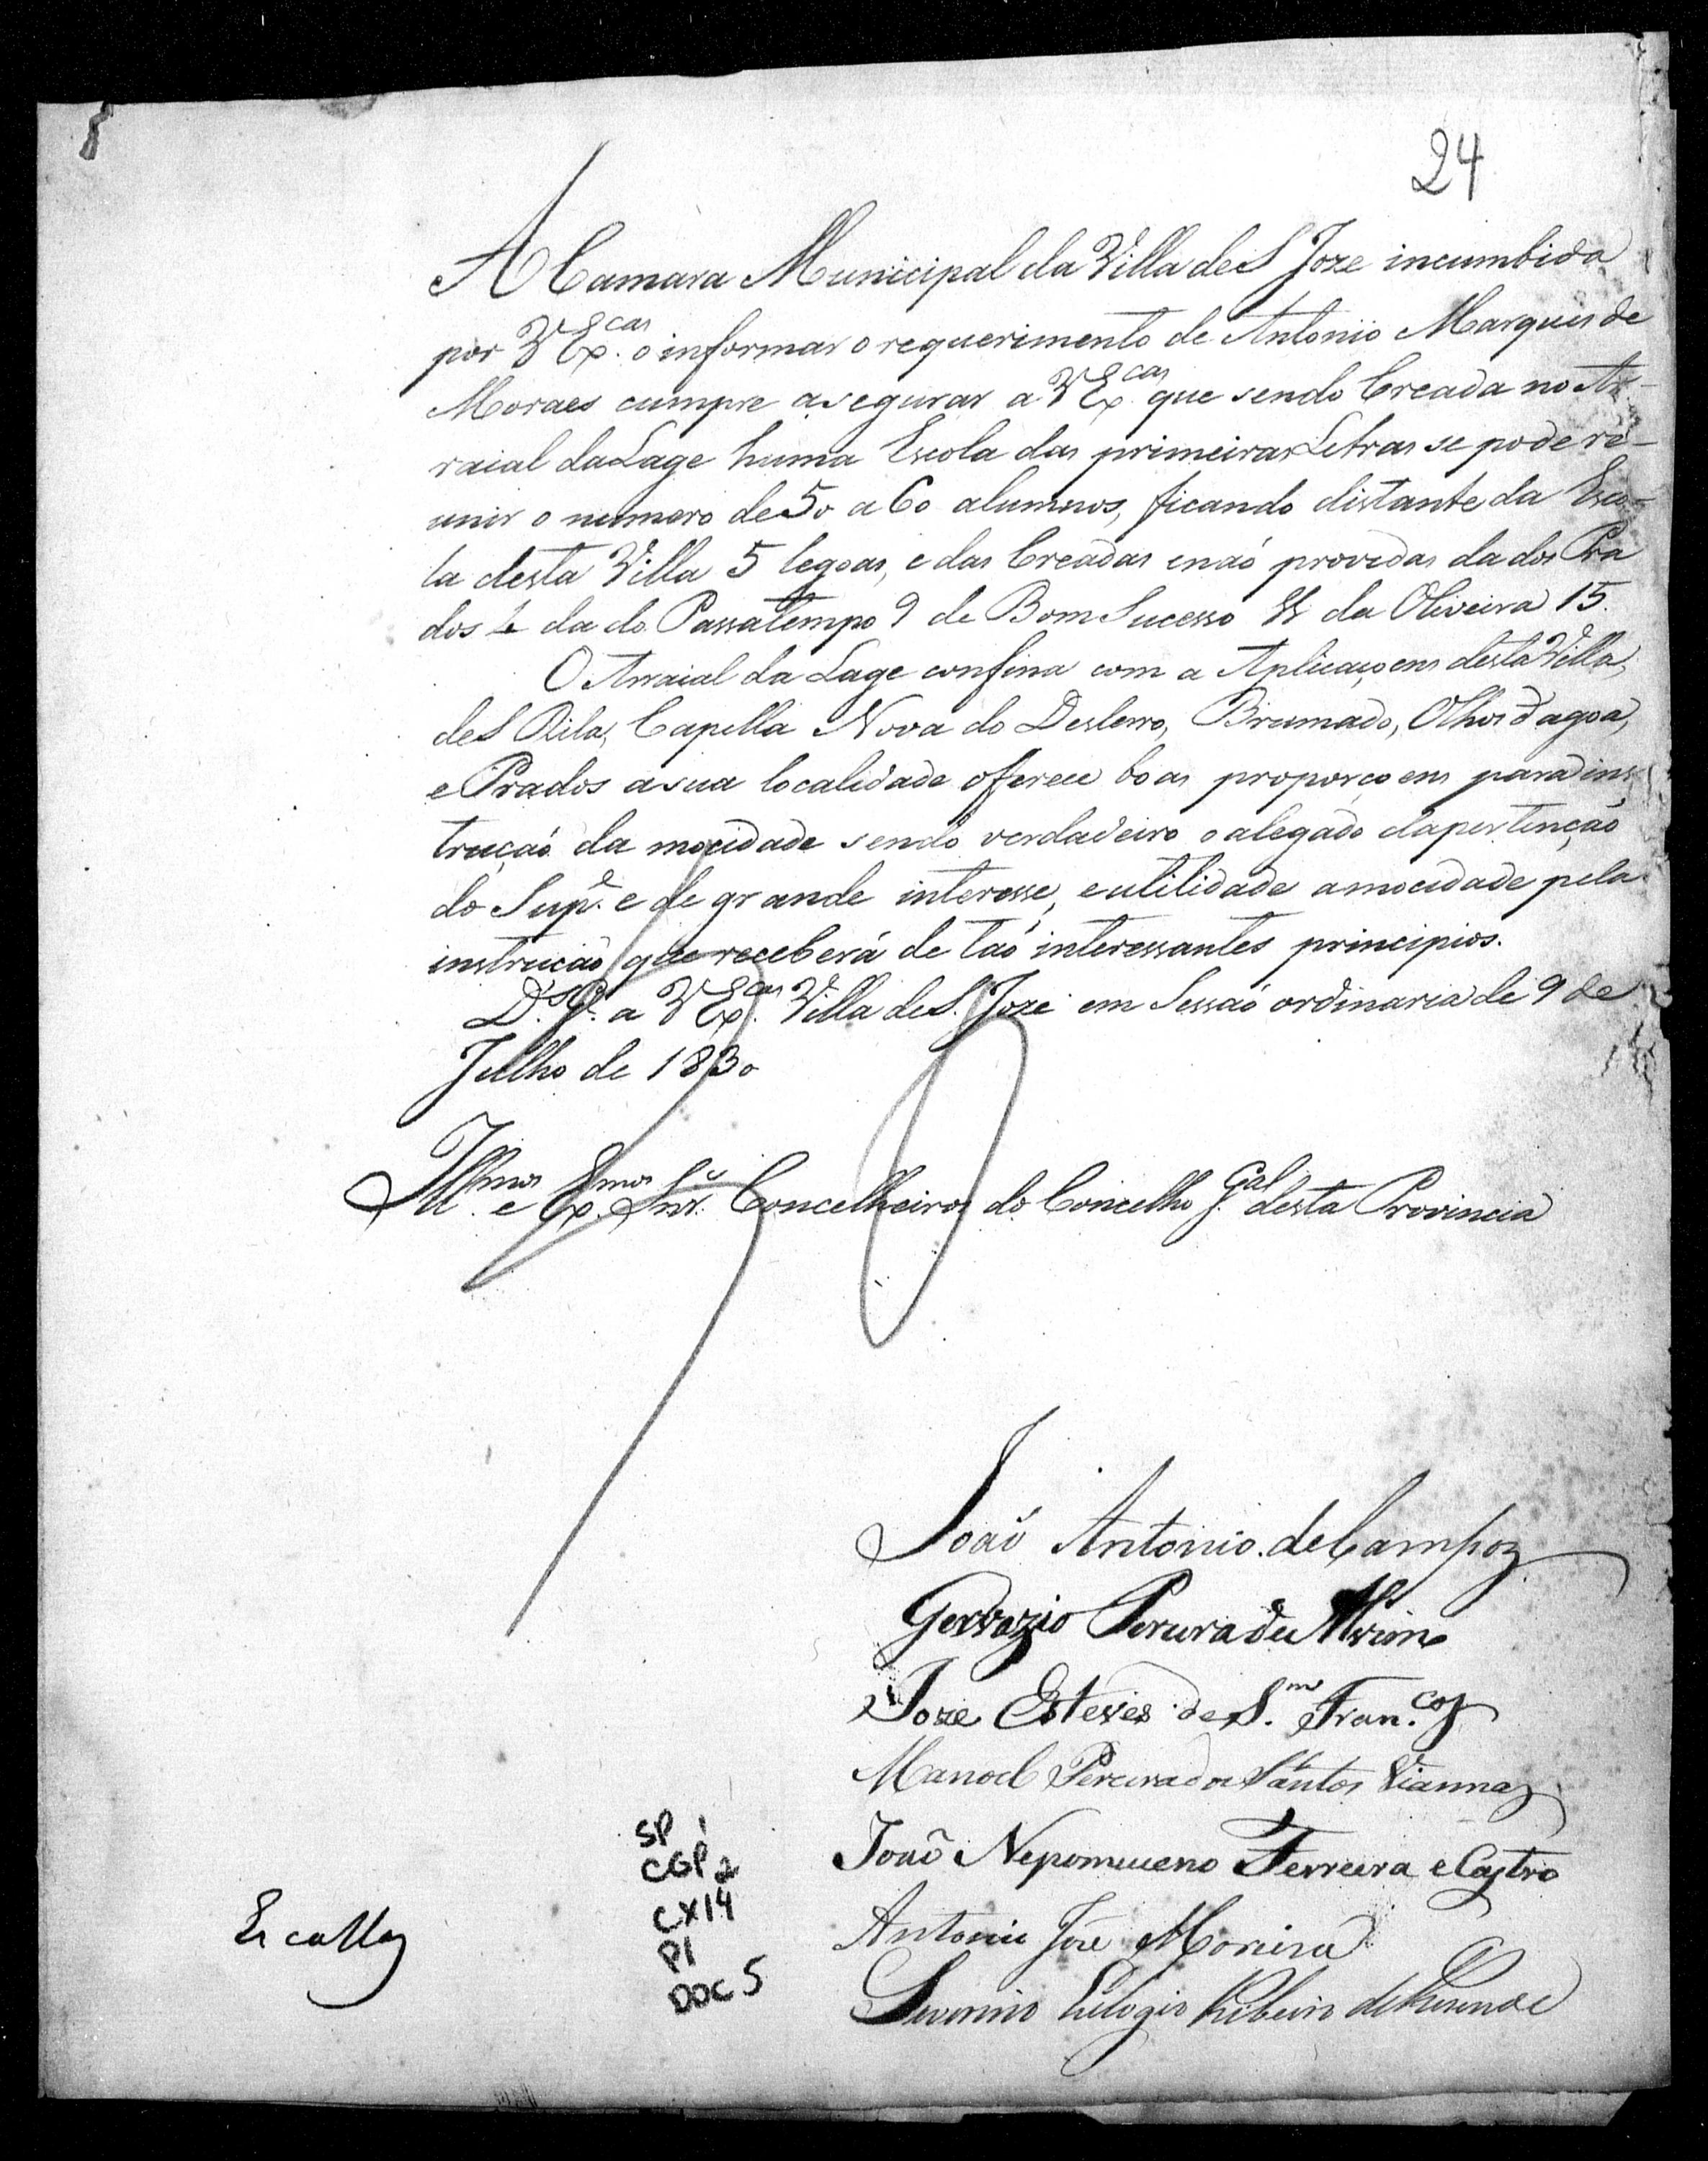 24
A Camara Municipal da Villa de S Joze incumbida
por V Ex.cas o informar o requerimento de Antonio Marques de
Moraes cumpre asegurar a V Ex.cas que sendo Creada no Ar-
raial da Lage huma Escola das primeiras Letras se pode re-
unir o numero de 50 a 60 alumnos, ficando distante da Esco-
la desta Villa 5 legoas, e das Creadas e naó providas da dos Pra
dos 4 da do Passatempo 9 de Bom Sucesso da Oliveira 15.
O Arraial da Lage confina com a Aplicaçoens desta Villa,
de S Rita, Capella Nova do Desterro, Brumado, Olhos d'agoa,
e Prados a sua localidade oferece boas proporçoens para a ins
truçaó da mocidade sendo verdadeiro o alegado da pertençaó
do Sup.e e de grande interesse, e utilidade a mocidade pela
instruçaó que receberá de taó interessantes principios.
D.s G.e a V Ex.cas Villa de S. Joze em Sessaó ordinaria de 9 de
Julho de 1830
Ill.mos e Ex.mos Snr.s Concelheiros do Concelho G.al desta Provincia
Joaõ Antonio de Campos
Gervazio Pereira de Alvim
Joze Esteves de S.m Fran.co
Manoel Pereira dos Santos Vianna
Joaõ Nepomuceno Ferreira e Castro
Antonio Joze Moreira
Severino Eulogio Ribeiro de Rezende
SP 1
CGP 2
CX14
P1
DOC 5
Escollas